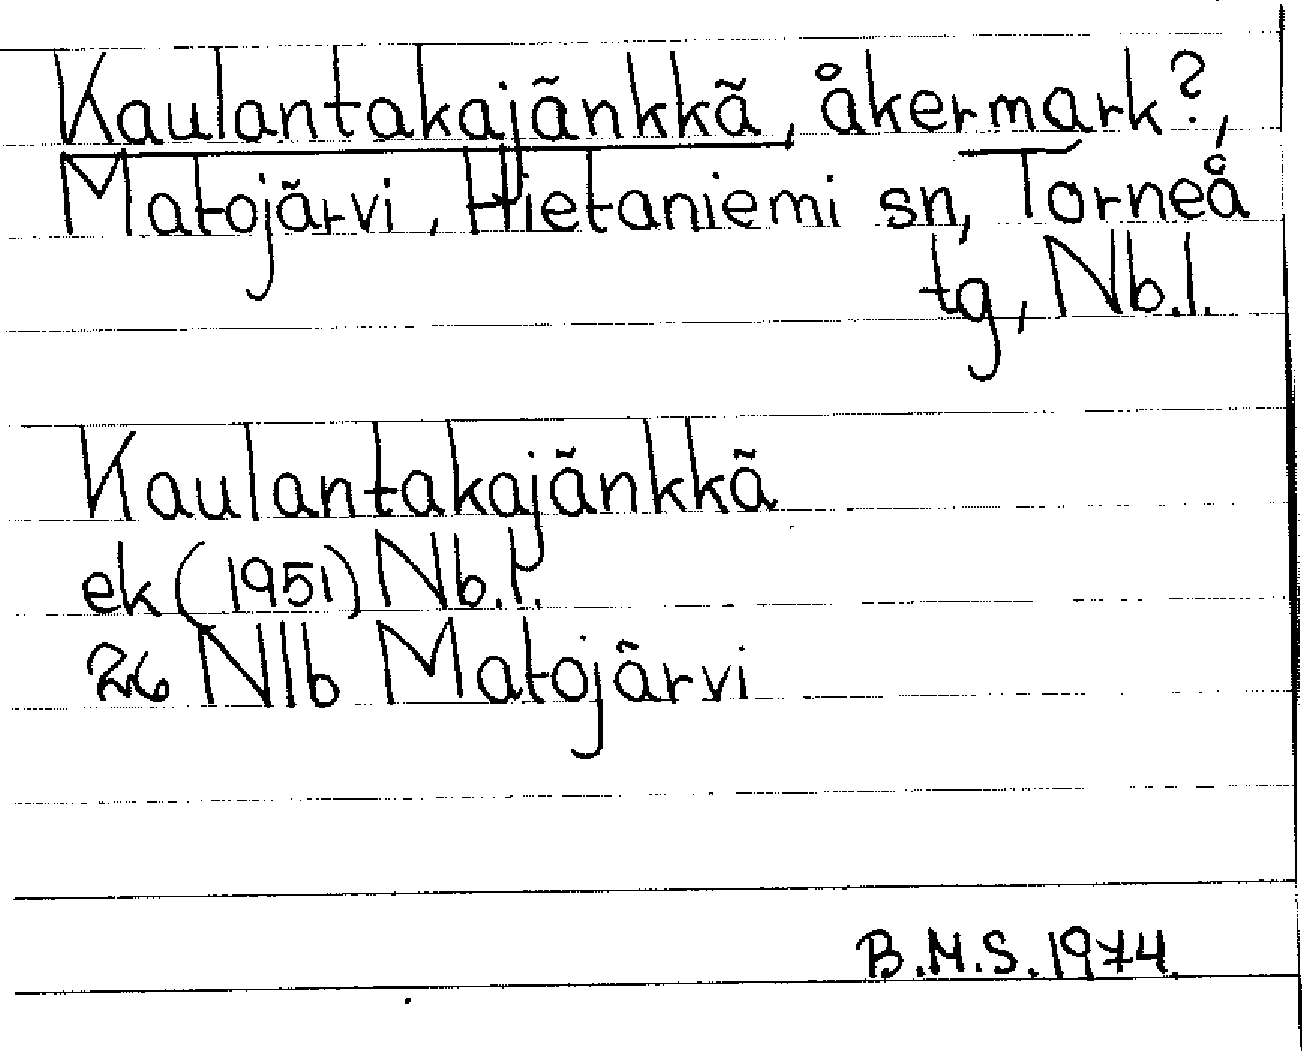 Kaulantakajänkkä, åkermark?,
Matojärvi, Hietaniemi sn, Torneå
tg, Nb.l.
Kaulantakajänkkä
ek (1951) Nb.l.
26 Nlb Matojärvi
B.M.S. 1974.